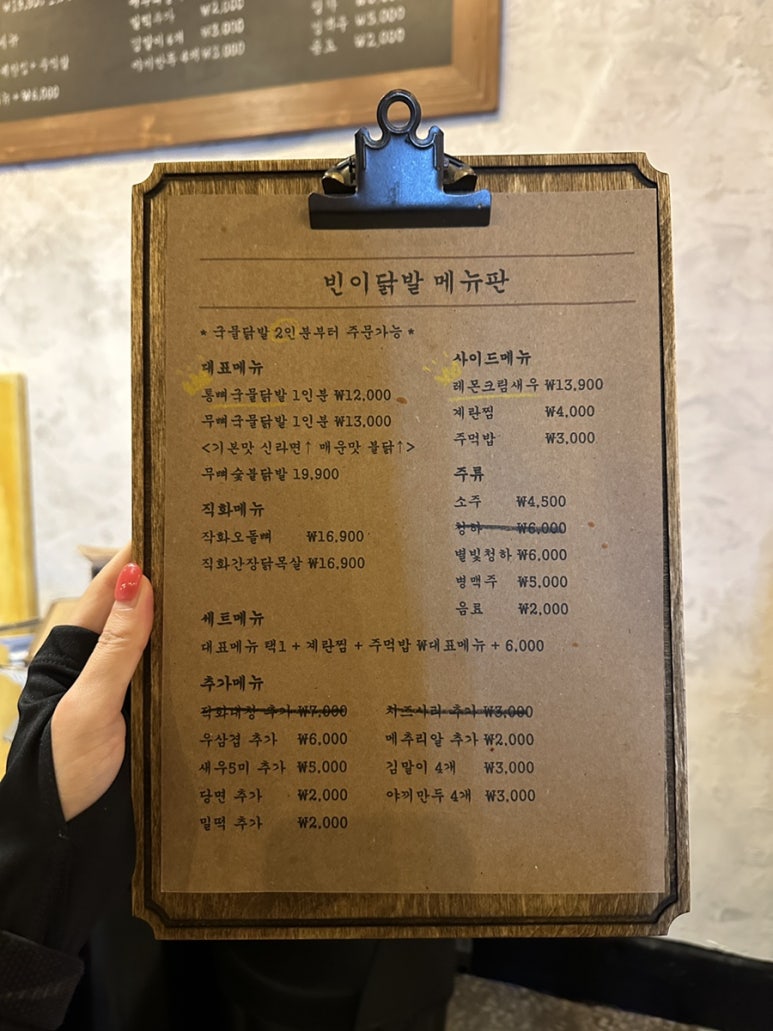 ₩2,000
₩3,000
김말이 4개 ₩3,000
야끼만두 4개 ₩3,000
₩3,000
음료 ₩2,000
빈이닭발 메뉴판
* 국물닭발 2인분부터 주문가능 *
대표메뉴
통뼈국물닭발 1인분 ₩12,000
무뼈국물닭발 1인분 ₩13,000
<기본맛 신라면↑ 매운맛 불닭↑>
무뼈숯불닭발 19,900
직화메뉴
작화오돌뼈 ₩16,900
직화간장닭목살 ₩16,900
사이드메뉴
레몬크림새우 ₩13,900
계란찜 ₩4,000
주먹밥 ₩3,000
주류
소주 ₩4,500
청하 ₩6,000
별빛청하 ₩6,000
병맥주 ₩5,000
음료 ₩2,000
세트메뉴
대표메뉴 택1 + 계란찜 + 주먹밥 ₩대표메뉴 + 6,000
추가메뉴
직화대창 추가 ₩7,000
우삼겹 추가 ₩6,000
새우5미 추가 ₩5,000
당면 추가 ₩2,000
밀떡 추가 ₩2,000
치즈사리 추가 ₩3,000
메추리알 추가 ₩2,000
김말이 4개 ₩3,000
야끼만두 4개 ₩3,000